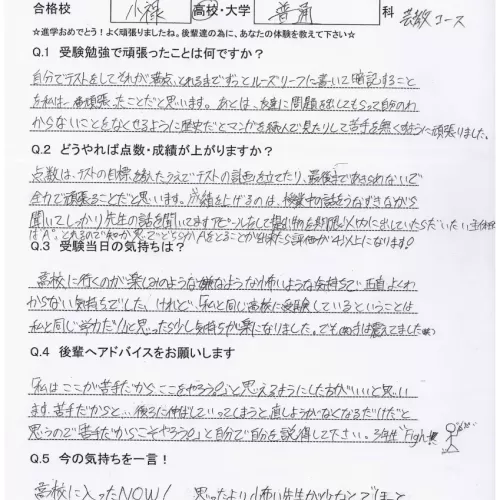 合格校 小禄 高校・大学 普通 科 芸教コース
☆進学おめでとう！よく頑張りましたね。後輩達の為に、あなたの体験を教えて下さい☆
Q.1 受験勉強で頑張ったことは何ですか？
自分でテストをしてそれが満点とれるまでずっとルーズリーフに書いて暗記すること
を私は一番頑張ったことだと思います。あとは、友達に問題を出してもらって自分のわ
からないことをなくせるように歴史だとマンガを読んで見たりして苦手を無くすように頑張りました。
Q.2 どうやれば点数・成績が上がりますか？
点数は、テストの目標を立てたうえでテストの計画を立てたり、最後まであきらめないで
全力で頑張ることだと思います。成績を上げるのは、授業中の話をうなずきながら
聞いてしっかり先生の話を聞いてますアピールをして提出物を期限以内に出していたらだいたい
Q.3 受験当日の気持ちは？
高校に行くのが楽しみのような嫌なような怖いような気持ちで正直よくわ
からない気持ちでした。けれど、「私と同じ高校に受験しているということは
私と同じ学力だ！」と思ったら少し気持ちが楽になりました。でも手は震えてました
Q.4 後輩へアドバイスをお願いします
「私はここが苦手だから、ここをやろう！」と思えるようにした方がいいと思い
ます。苦手だからと…後ろに伸ばしていってしまうと、直しようがなくなるだけだと
思うので「苦手だからこそやろう！」と自分で自分を説得して下さい。3年生 Fight
Q.5 今の気持ちを一言！
高校に入ったNOW！ 思ったより怖い先生が少なくてほっと